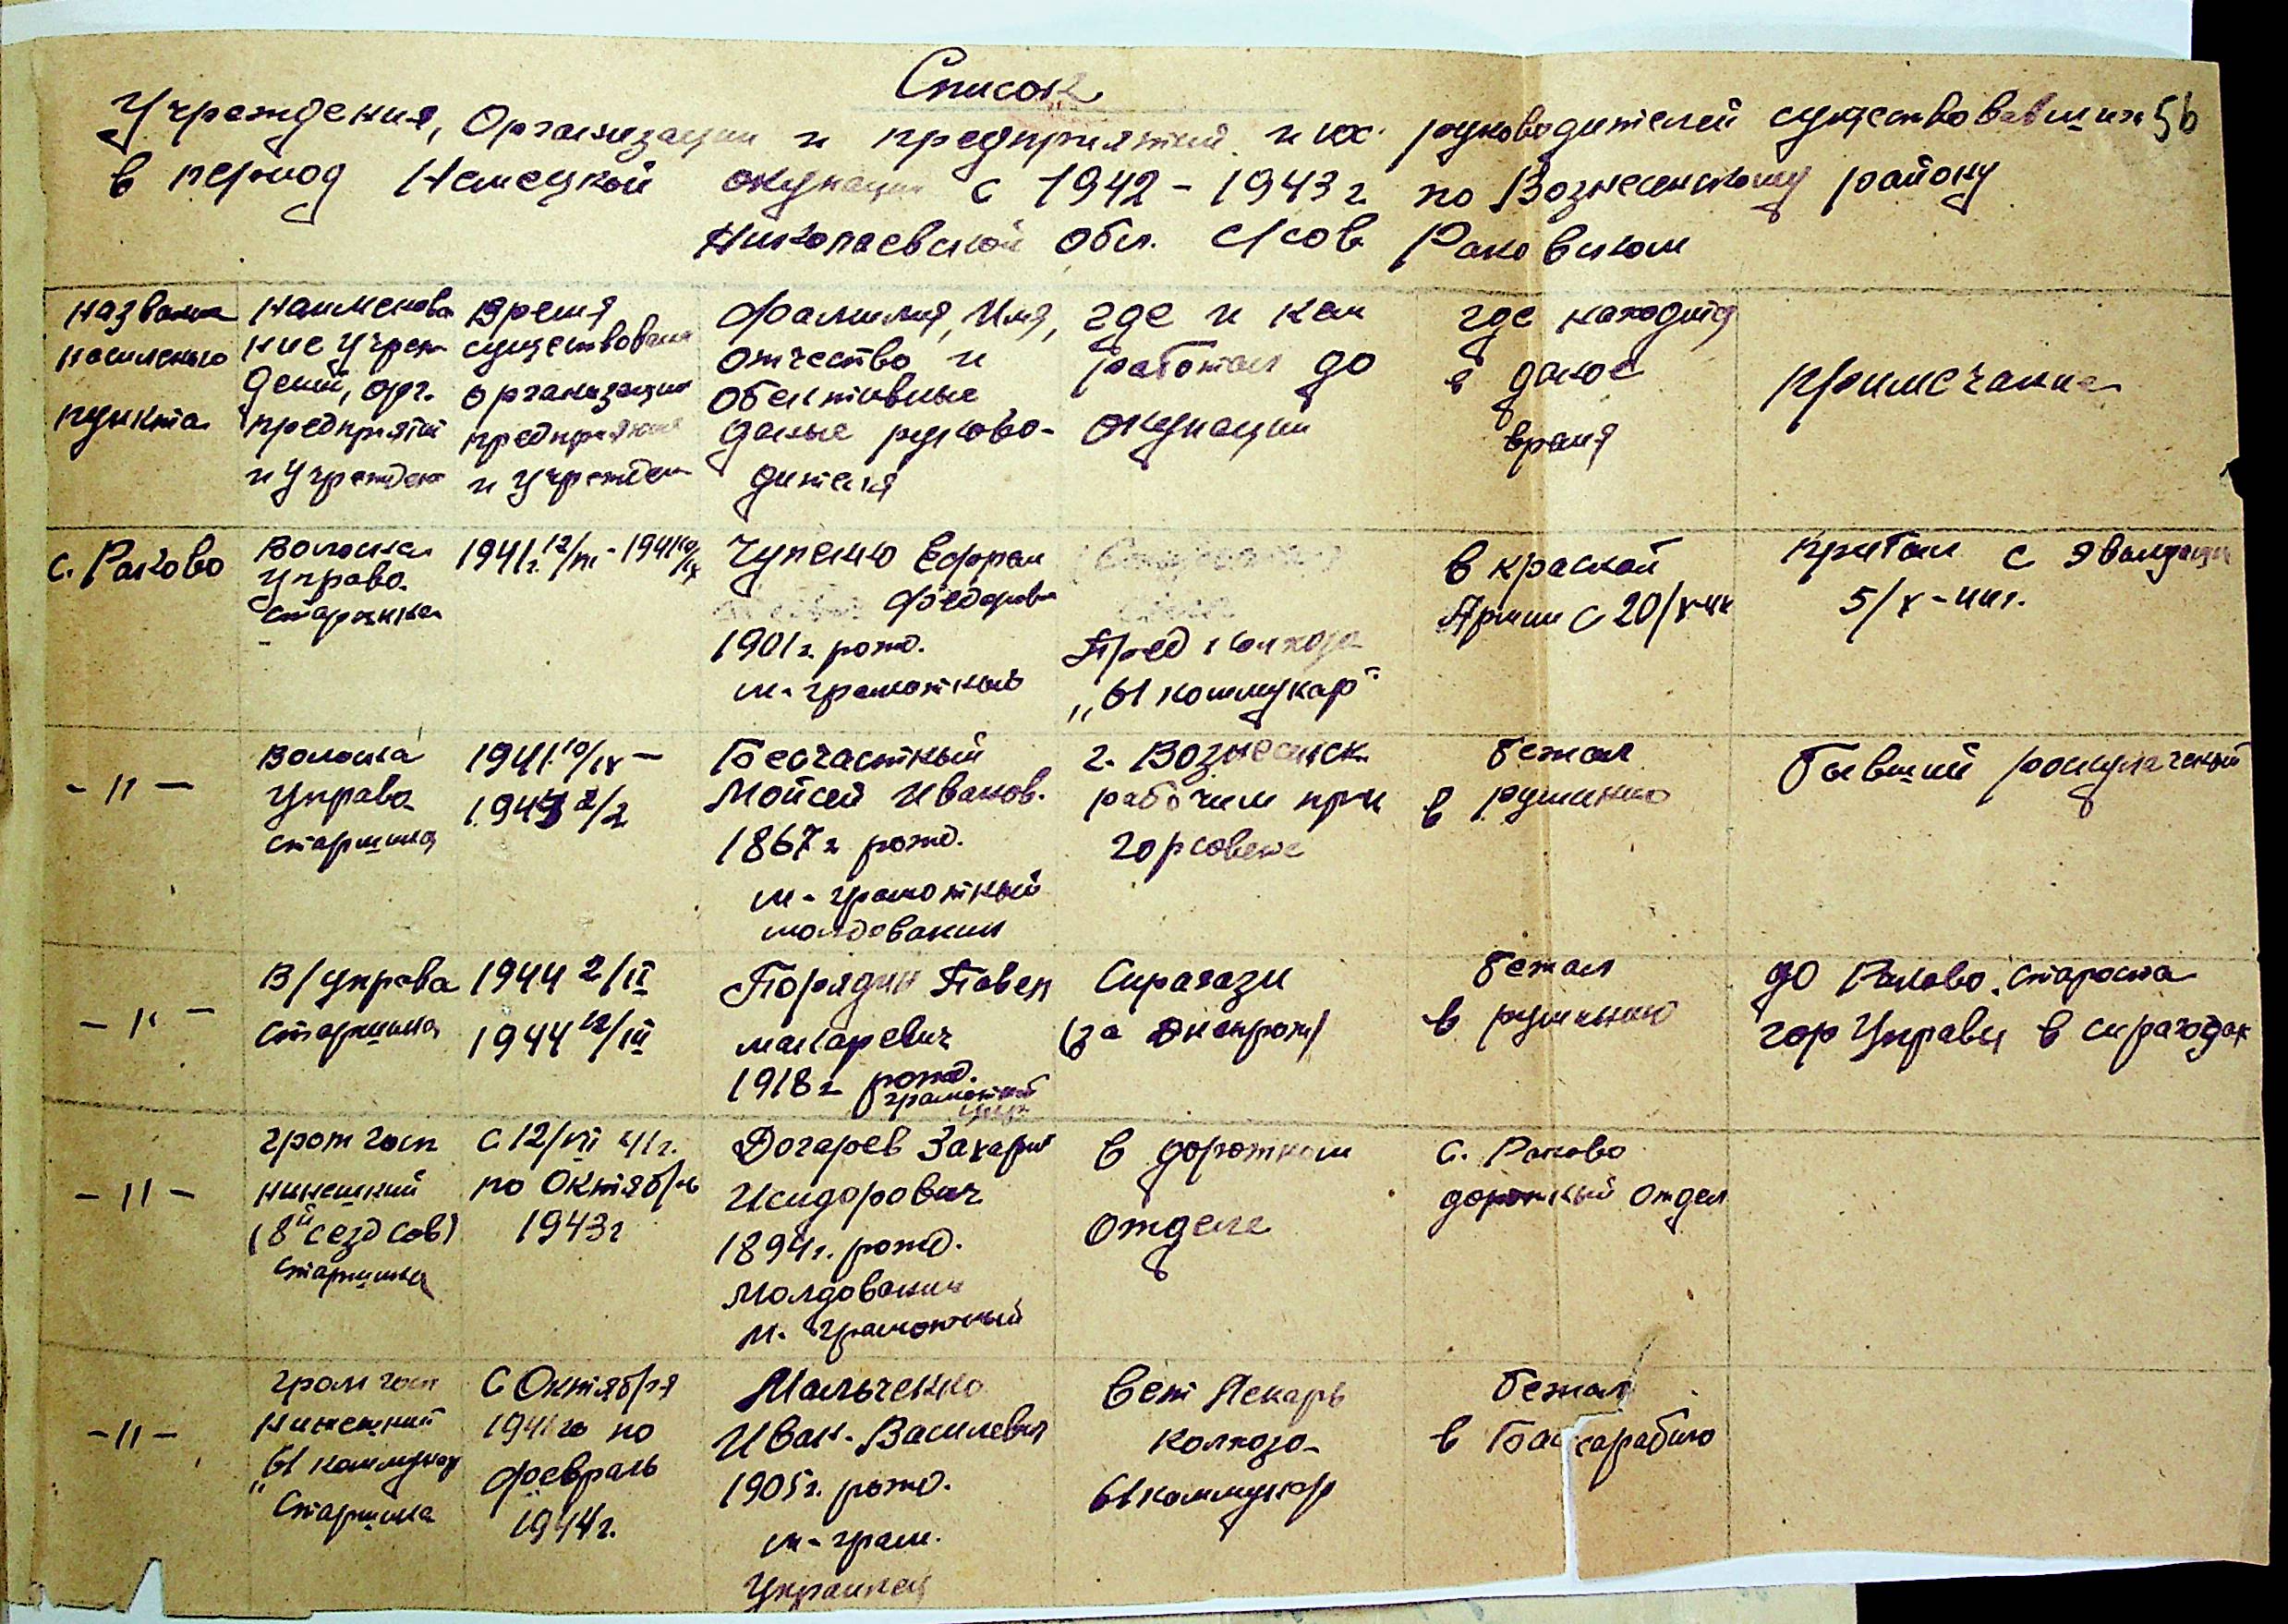 Список
Учреждения, Организации и предприятий и их руководителей существовавших 56
в период Немецкой окупации с 1942 - 1943 г. по Вознесенскому району
Николаевской обл. с/сов Раковском
Название
насиленого
пункта
Наименова
ние учреж
дений, орг.
предприятий
и учрежден
Время
существования
организации
предприятия
и учрежден
Фамилия, Имя,
отчество и
обективные
даные руково-
дителя
где и кем
работал до
окупации
где находится
в даное
время
Примечание
с. Раково
Волосная
управа.
старшина
1941 г. 12/VIII - 1941 10/IX
Чупенко Ефрам
Федоров
1901 г. рожд.
м-грамотный
Пред колхоза
„61 коммунар"
в красной
Армии с 20/X-44
Прибыл с эвакуации
5/X-44 г.
- 11 -
Волосна
управа
старшина
1941 10/IX -
1943 2/2
Бесчастный
Мойсей Иванов.
1867 г рожд.
м-грамотный
молдованин
г. Вознесенск
рабочим при
горсовете
бежал
в румынию
бывший раскулаченый
- 11 -
В/управа
старшина
1944 2/II
1944 12/III
Порядин Павел
макаревич
1918 г рожд.
грамотный
укр
Сирагази
(за Днепром)
бежал
в румынию
до Раково. староста
гор Управы в сирагозах
- 11 -
гром хоз
нинешний
(8й сезд сов)
старшина
С 12/VIII 41 г.
по Октябрь
1943 г
Догарев Захарий
Исидорович
1894 г. рожд.
Молдованин
м. грамотный
в дорожном
отделе
с. Раково
дорожный отдел
- 11 -
гром хоз
Нинешний
„61 коммунар
Старшина
С Октября
1941 го по
февраль
1944 г.
Мальченко
Иван. Василевич
1905 г. рожд.
м-грам.
Украинец
Вет Лекарь
колхоза
61 коммунар
бежал
в Бассарабию